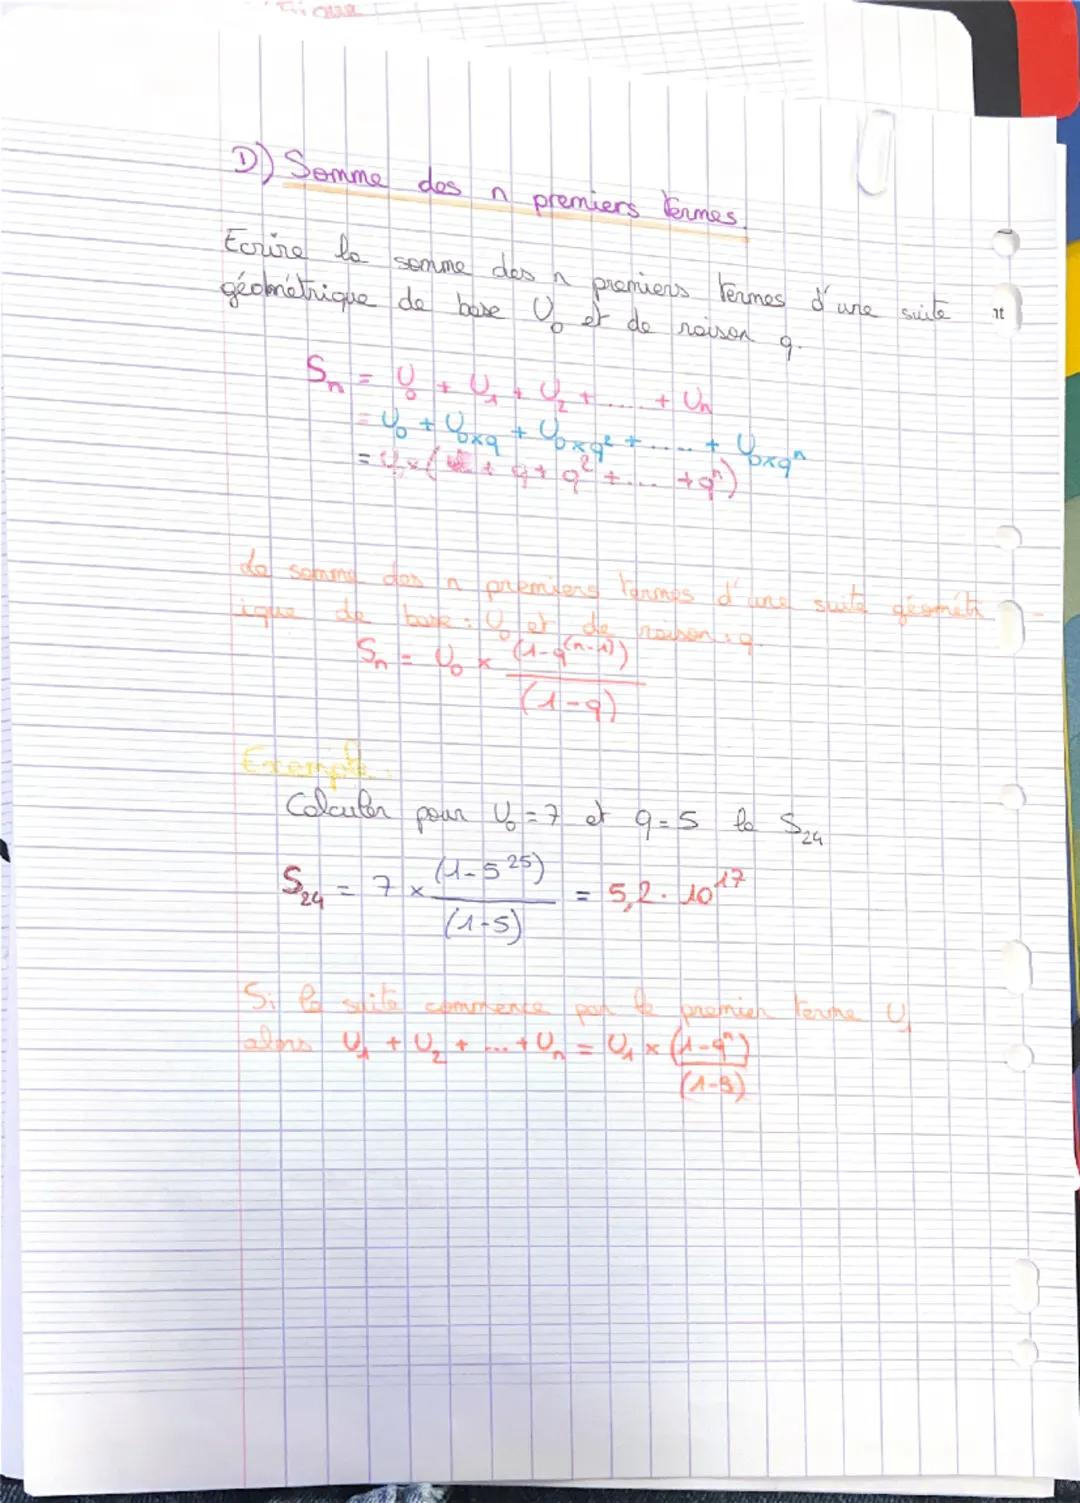 D) Somme des n premiers termes.
Ecrire la somme des n premiers termes d'une suite
géométrique de base U₀ et de raison q.
Sₙ = U₀ + U₁ + U₂ + ..... + Uₙ
= U₀ + U₀×q + U₀×q² + ..... + U₀×qⁿ
= U₀×( 1 + q + q² + .... + qⁿ)
La somme des n premiers termes d'une suite géométr
ique de base : U₀ et de raison : q
Sₙ = U₀ × (1-q⁽ⁿ⁻¹⁾)
(1-q)
Exemple.
Calculer pour U₀ = 7 et q = 5 la S₂₄
S₂₄ = 7 × (1-5²⁵) = 5,2 . 10¹⁷
(1-5)
Si la suite commence par le premier terme U₁
alors U₁ + U₂ + .... + Uₙ = U₁ × (1-qⁿ)
(1-q)